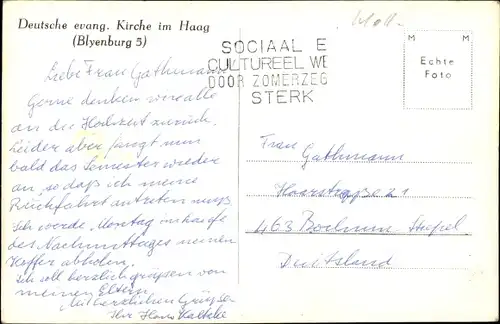 Deutsche evang. Kirche im Haag
(Blyenburg 5)
SOCIAAL E
CULTUREEL WE
DOOR ZOMERZEG
STERK
M M
Echte
Foto
Liebe Frau Gathmann
Gerne denken wir alle
an die Hochzeit zurück.
Leider aber fängt nun
bald das Semester wieder
an, so daß ich meine
Rückfahrt antreten muß
Ich werde Montag im Laufe
des Nachmittages meinen
Koffer abholen.
Ich soll herzlich grüßen von
meinen Eltern,
Mit herzlichen Grüßen
Ihr Hans
Frau
Gathmann
Haarstraße 21
463 Bochum-Stiepel
Deutsland